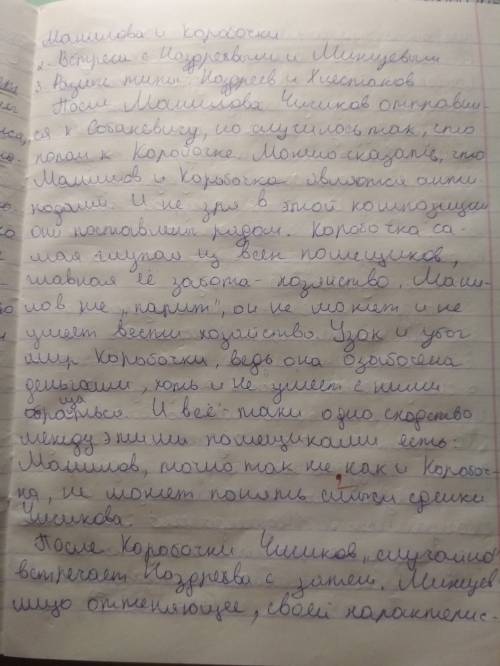 Манилова и Коробочки
2. Встреча с Ноздревым и Мижуевым
3. Разные типы. Ноздрев и Хлестаков
После Манилова Чичиков отправил-
ся к Собакевичу, но случилось так, что
попал к Коробочке. Можно сказать, что
Манилов и Коробочка являются анти
подами. И не зря в этой композиции
они поставлены рядом. Коробочка са-
мая глупая из всех помещиков,
главная её забота - хозяйство. Мани-
лов же "парит", он не может и не
умеет вести хозяйство. Узок и убог
мир Коробочки, ведь она озабочена
деньгами, хоть и не умеет с ними
обращаться. И всё-таки одно сходство
между этими помещиками есть:
Манилов, точно так же как и Коробоч-
ка, не может понять смысл сделки
Чичикова.
После Коробочки Чичиков "случайно"
встречает Ноздрева с зятем. Мижуев
лицо оттеняющее, своей характерис-